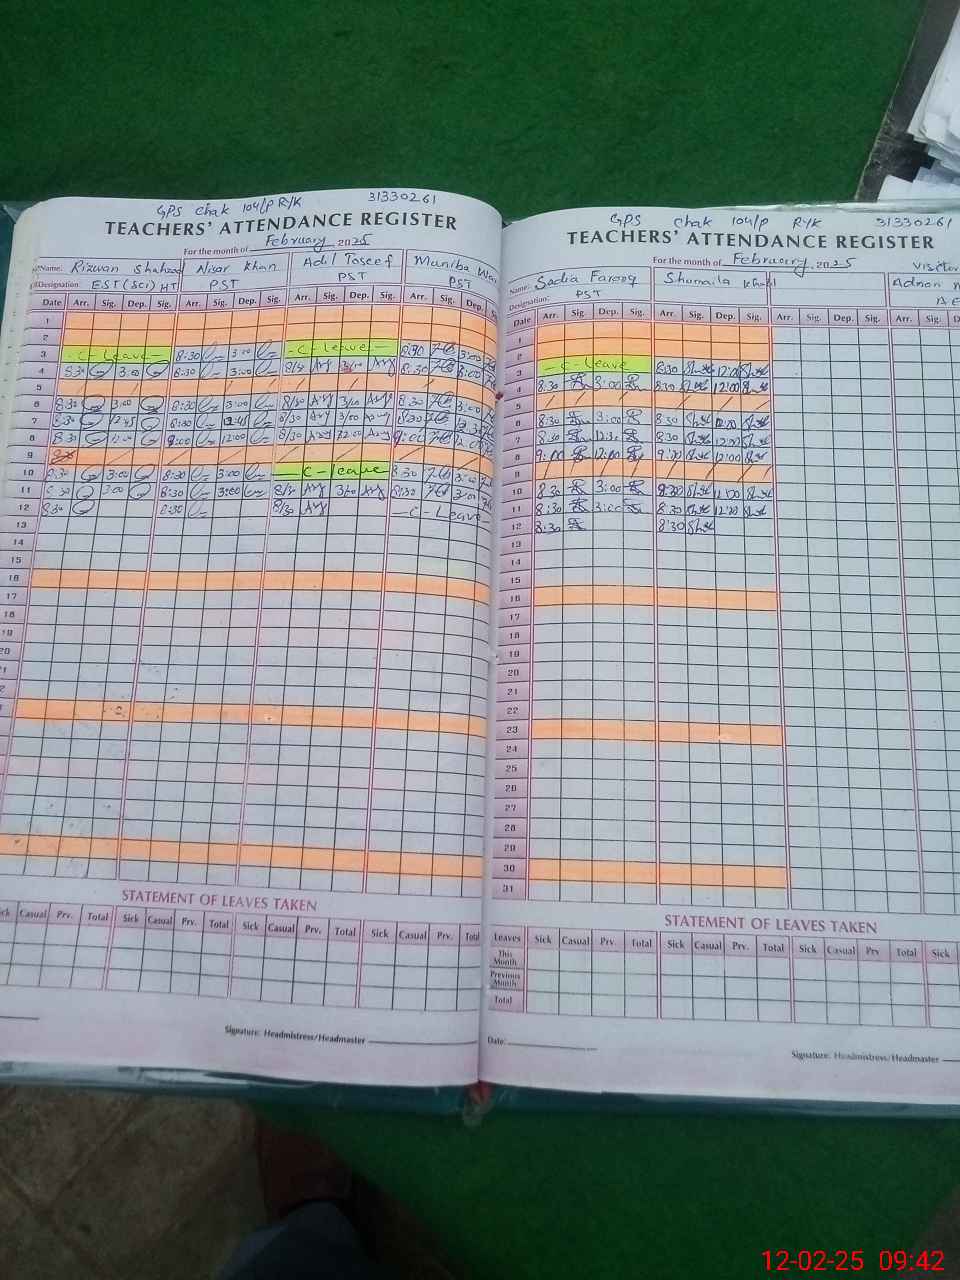 GPS Chak 104/P RYK 31330261
TEACHERS' ATTENDANCE REGISTER
For the month of February 2025
Name: Rizwan Shahzad Nisar Khan Adil Toseef Maniba
Designation: EST (Sci) HT PST PST PST
Date Arr. Sig. Dep. Sig. Arr. Sig. Dep. Sig. Arr. Sig. Dep. Sig. Arr. Sig. Dep.
1
2
3 -C-Leave- 8:30 3:00 -C-Leave- 8:30 3:00
4 8:30 3:00 8:30 3:00 8/30 3/00 8:30 3:00
5
6 8:30 3:00 8:30 3:00 8/30 3/00 8:30 3:00
7 8:30 12:45 8:30 12:45 8/30 3/00 8:30
8 8:30 9:00 12:00 8/30 12:00 9:00
9
10 8:30 3:00 8:30 3:00 -C-leave 8:30 3:00
11 8:30 3:00 8:30 3:00 8/30 3/00 8:30 3:00
12 8:30 8:30 8/30 -C-Leave-
13
14
15
16
17
18
19
20
STATEMENT OF LEAVES TAKEN
Casual Prv. Total Sick Casual Prv. Total Sick Casual Prv. Total Sick Casual Prv. Total
Signature: Headmistress/Headmaster
GPS Chak 104/P RYK 31330261
TEACHERS' ATTENDANCE REGISTER
For the month of February, 2025
Visitor
Name: Sadia Farooq Shumaila Adnan
Designation: PST
Date Arr. Sig. Dep. Sig. Arr. Sig. Dep. Sig. Arr. Sig. Dep. Sig. Arr. Sig.
1
2
3 -C-Leave 8:30 12:00
4 8:30 3:00 8:30 12:00
5
6 8:30 3:00 8:30 12:00
7 8:30 12:30 8:30 12:00
8 9:00 12:00 9:00 12:00
9
10 8:30 3:00 8:30 12:00
11 8:30 3:00 8:30 12:00
12 8:30 8:30
13
14
15
16
17
18
19
20
21
22
23
24
25
26
27
28
29
30
31
STATEMENT OF LEAVES TAKEN
Leaves Sick Casual Prv. Total Sick Casual Prv. Total Sick Casual Prv Total Sick
This Month
Previous Month
Total
Date:
Signature: Headmistress/Headmaster
12-02-25 09:42